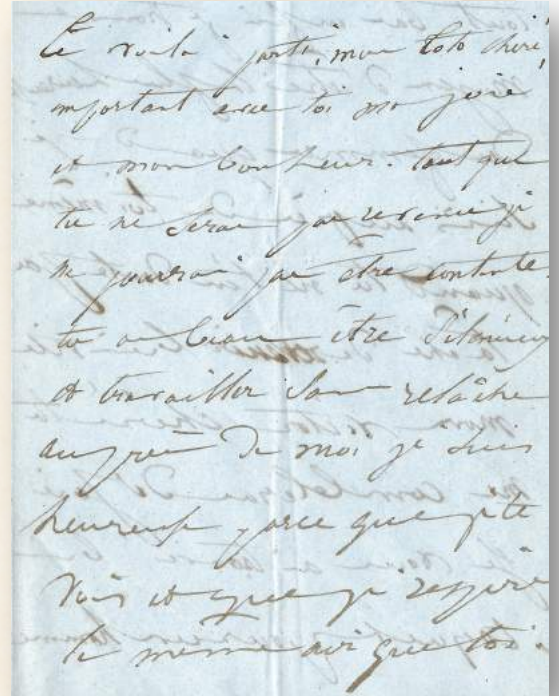 te voilà parti, mon Toto chéri,
emportant avec toi ma joie
et mon bonheur. tant que
tu ne seras pas revenu je
ne pourrai pas être contente
tu as beau être silencieux
et travailler sans relâche
auprès de moi je suis
heureuse parce que je te
vois et que je respire
le même air que toi.